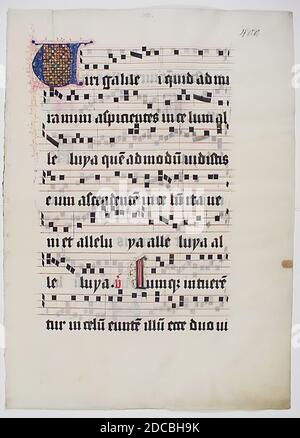 Viri galilei quid admi
ramini aspicientes in celum al
leluya quē admodū vidistis
eum ascendentē in celū ita ve
niet alleluya alleluya al
leluya. v̄ Cumqȝ intueren
tur in celū euntē illū ecce duo vi